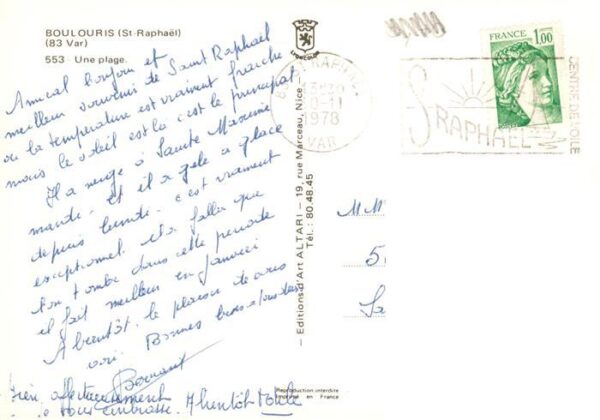 BOULOURIS (St-Raphaël)
(83 Var)
553 - Une plage.
Amical bonjour et
meilleur souvenir de Saint Raphael
ou la température est vraiment fraîche
mais le soleil est la c'est le principal
Il a neigé à Sainte Maxime
mardi. et il a gelé a glace
depuis lundi. c'est vraiment
exceptionnel. Il a fallu que
l'on tombe dans cette période
il fait meilleur en janvier
A bientôt. le plaisir de vous
Bonnes bises a tous deux
affectueusement
je vous embrasse. A bientôt
- Editions d'Art ALTARI - 19, rue Marceau, Nice -
Tél. : 80.48.45
Reproduction interdite
Imprimé en France
1978
VAR
S RAPHAEL
CENTRE DE VOILE
1,00
MM
5